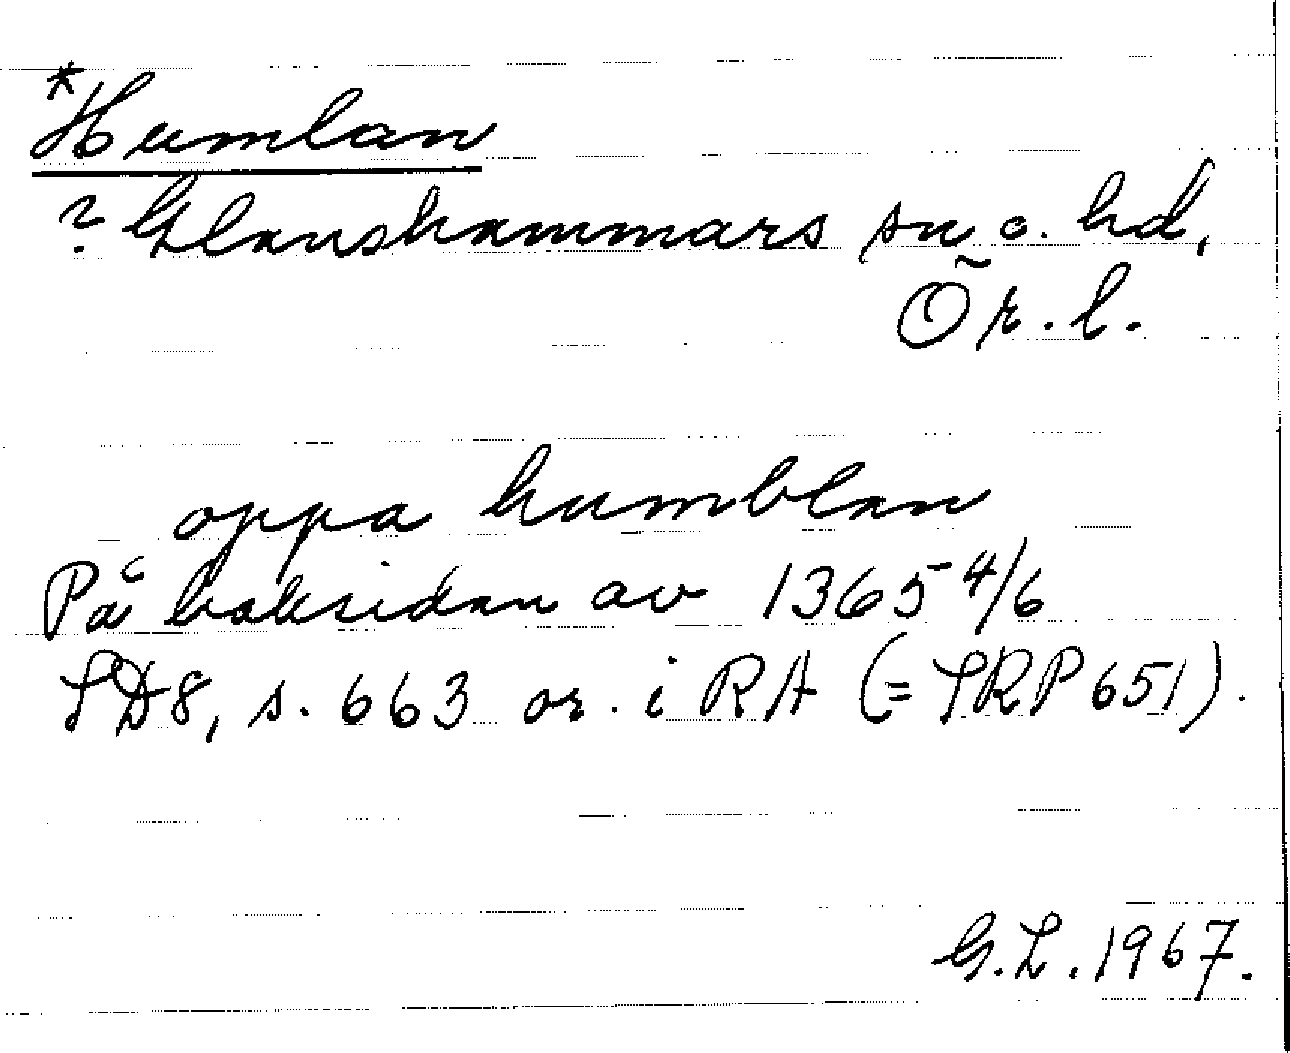 *Humlan
? Glanshammars sn o. hd,
Ör. l.
oppa humblan
På baksidan av 1365 4/6
SD8, s. 663 or. i RA (= SRP 651).
G.L. 1967.